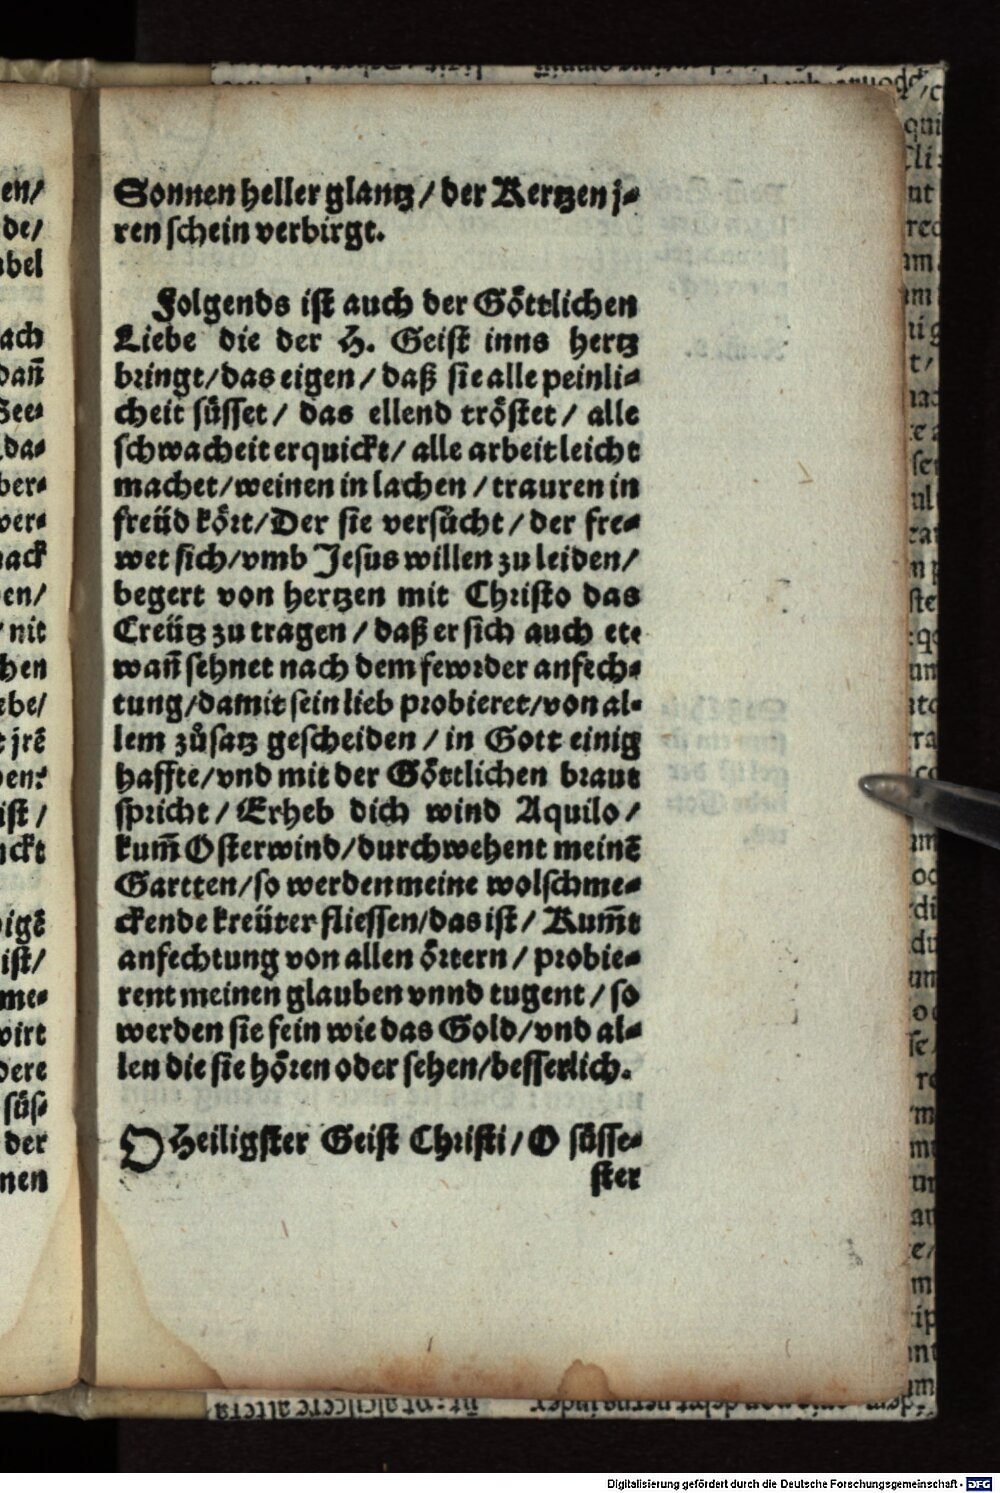 Sonnen heller glantz / der Kertzen j-
ren schein verbirgt.
Folgends ist auch der Göttlichen
Liebe die der H. Geist inns hertz
bringt/das eigen / daß sie alle peinli-
cheit süsset / das ellend tröstet / alle
schwacheit erquickt / alle arbeit leicht
machet/weinen in lachen / trauren in
freüd kört/Der sie versücht / der fre-
wet sich/vmb Jesus willen zu leiden/
begert von hertzen mit Christo das
Creütz zu tragen / daß er sich auch et-
wañ sehnet nach dem fewr der anfech-
tung/damit sein lieb probieret/von al-
lem zůsatz gescheiden / in Gott einig
haffte/vnd mit der Göttlichen braut
spricht / Erheb dich wind Aquilo /
kum̃ Osterwind/durchwehent meinẽ
Gartten/so werden meine wolschme-
ckende kreüter fliessen/das ist / Kum̃t
anfechtung von allen örtern / probie-
rent meinen glauben vnnd tugent / so
werden sie fein wie das Gold/vnd al-
len die sie hören oder sehen/besserlich.
O Heiligster Geist Christi / O süsse-
ster
en/
de/
abel
ach
dañ
See-
da-
ber-
ver-
nack
en/
nit
hen
ebe/
jrẽ
ist /
uckt
igẽ
ist/
me-
wirt
dere
süs-
der
nen
Digitalisierung gefördert durch die Deutsche Forschungsgemeinschaft - DFG